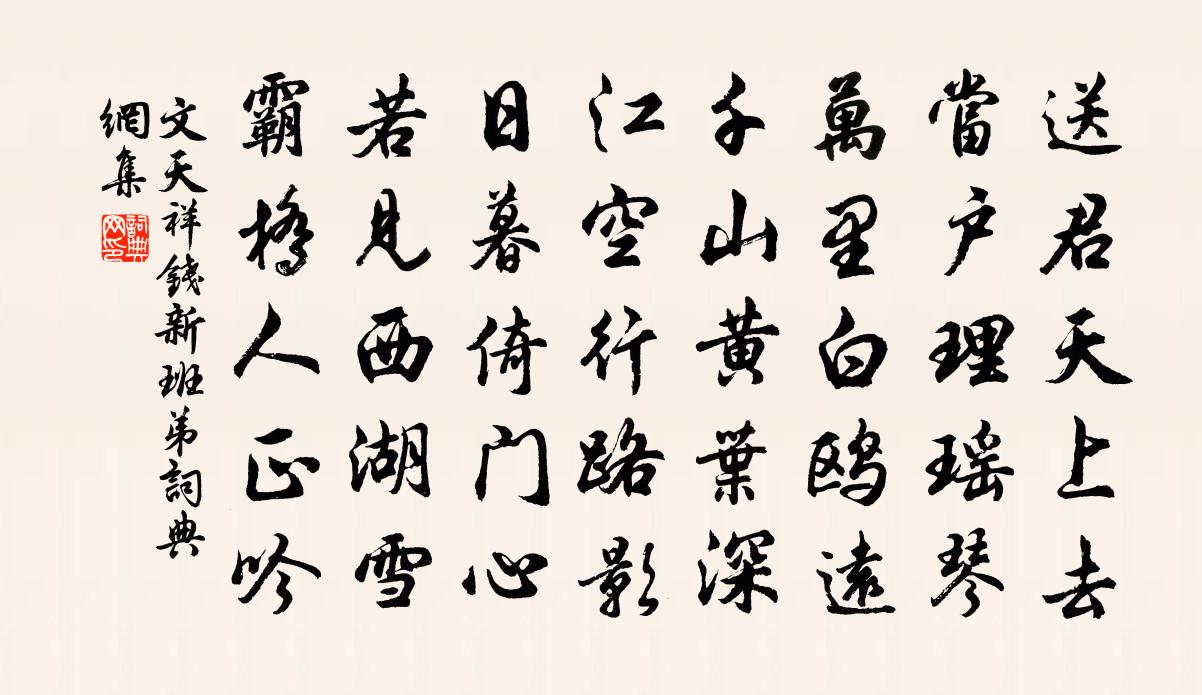 送君天上去
當户理瑶琴
萬里白鸥遠
千山黄葉深
江空行路影
日暮倚门心
若见西湖雪
霸橋人正吟
文天祥錢新班弟詞典
網集
詞典
网印